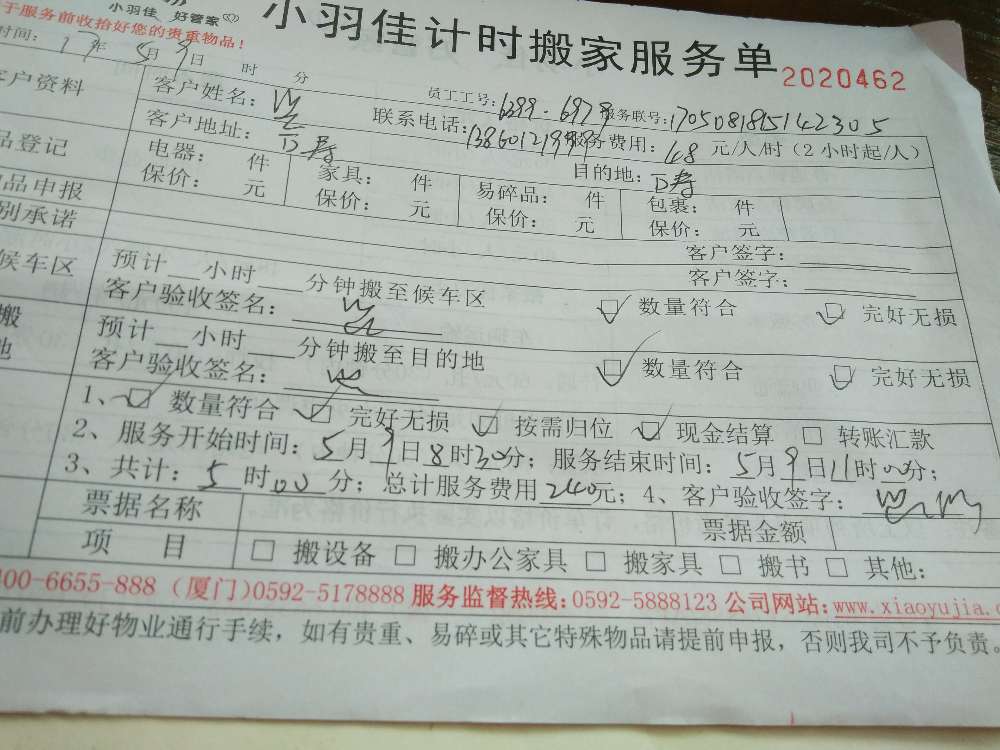 小羽佳 好管家
于服务前收拾好您的贵重物品!
小羽佳计时搬家服务单
2020462
时间: 17年 5月9日 时 分
员工工号: 6299.6979 服务联号: 170508185142305
客户资料
客户姓名:
联系电话: 服务费用: 48 元/人/时(2小时起/人)
客户地址:
目的地:
品登记
电器: 件 家具: 件 易碎品: 件 包裹: 件
保价: 元 保价: 元 保价: 元 保价: 元
品申报
客户签字:
别承诺
客户签字:
候车区
预计 小时 分钟搬至候车区
客户验收签名: 数量符合 完好无损
搬
地
预计 小时 分钟搬至目的地
客户验收签名: 数量符合 完好无损
1、 数量符合 完好无损 按需归位 现金结算 转账汇款
2、服务开始时间: 5月9日8时30分; 服务结束时间: 5月9日11时00分;
3、共计: 5时00分; 总计服务费用240元; 4、客户验收签字:
票据名称 票据金额
项 目 搬设备 搬办公家具 搬家具 搬书 其他:
400-6655-888 (厦门)0592-5178888 服务监督热线:0592-5888123 公司网站:www.xiaoyujia.c
前办理好物业通行手续,如有贵重、易碎或其它特殊物品请提前申报,否则我司不予负责。